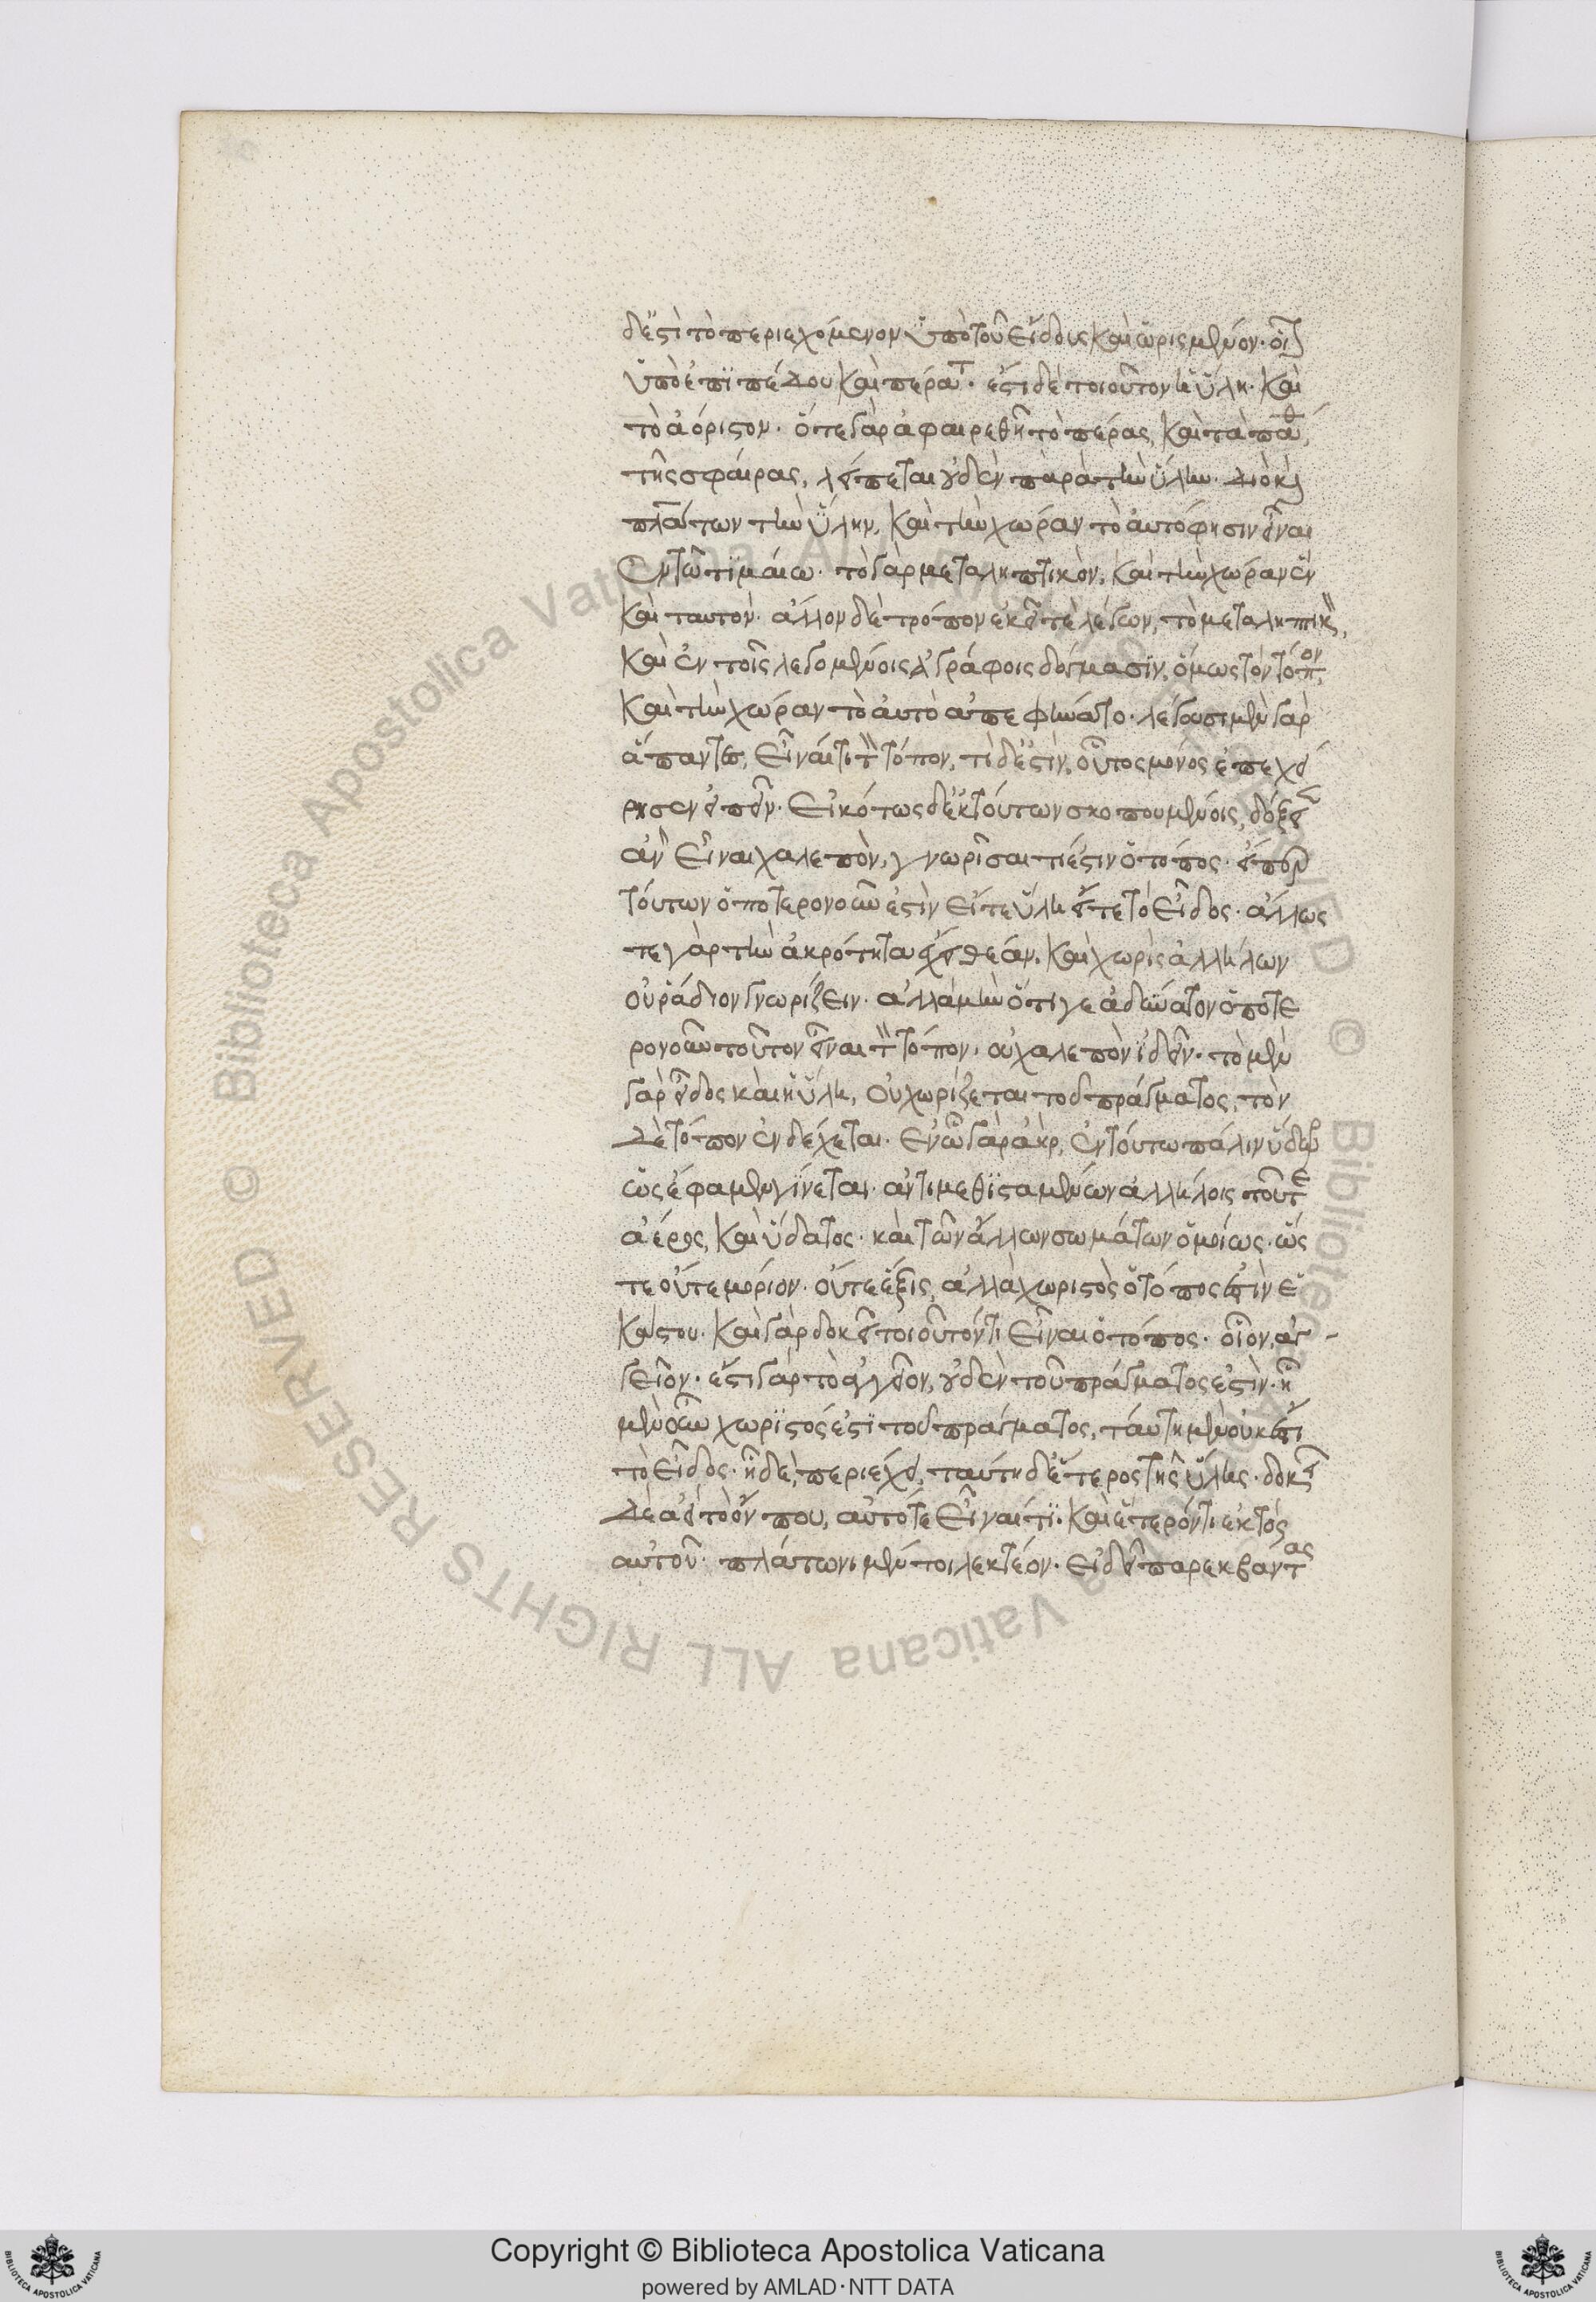 δ' ἐστὶ τὸ περιεχόμενον ὑπὸ τοῦ εἴδους καὶ ὡρισμένον. οἷον
ὑπὸ ἐπιπέδου καὶ πέρατος. ἔστι δὲ τοιοῦτον ἡ ὕλη. καὶ
τὸ ἀόριστον. ὅτε γὰρ ἀφαιρεθῇ τὸ πέρας, καὶ τὰ πάθη
τῆς σφαίρας, λείπεται οὐδὲν παρὰ τὴν ὕλην. διὸ καὶ
πλάτων τὴν ὕλην, καὶ τὴν χώραν τὸ αὐτό φησιν εἶναι
ἐν τῷ τιμαίῳ. τὸ γὰρ μεταληπτικὸν, καὶ τὴν χώραν ἓν
καὶ ταυτόν. ἄλλον δὲ τρόπον ἐκεῖ τε λέγων, τὸ μεταληπτικὸν,
καὶ ἐν τοῖς λεγομένοις ἀγράφοις δόγμασιν, ὅμως τὸν τόπον,
καὶ τὴν χώραν τὸ αὐτὸ ἀπεφήνατο. λέγουσι μὲν γὰρ
ἅπαντες, εἶναί τι τὸν τόπον, τί δ' ἐστὶν, οὗτος μόνος ἐπεχεί
ρησεν εἰπεῖν. εἰκότως δ' ἐκ τούτων σκοπουμένοις, δόξειεν
ἂν εἶναι χαλεπὸν, γνωρίσαι τί ἐστιν ὁ τόπος. εἴπερ
τούτων ὁποτερονοῦν ἐστὶν εἴτε ὕλη εἴτε τὸ εἶδος. ἄλλως
τε γὰρ τὴν ἀκρότητα ἔχει θέαν, καὶ χωρὶς ἀλλήλων
οὐ ῥάδιον γνωρίζειν. ἀλλὰ μὴν ὅτι γε ἀδύνατον ὁποτε
ρονοῦν τοῦτον εἶναι τὸν τόπον, οὐ χαλεπὸν ἰδεῖν. τὸ μὲν
γὰρ εἶδος καὶ ἡ ὕλη, οὐ χωρίζεται τοῦ πράγματος, τὸν
δὲ τόπον ἐνδέχεται. ἐν ᾧ γὰρ ἀὴρ, ἐν τούτῳ πάλιν ὕδωρ
ὡς ἔφαμεν γίνεται. ἀντιμεθισταμένων ἀλλήλοις τοῦ τε
ἀέρος, καὶ ὕδατος. καὶ τῶν ἄλλων σωμάτων ὁμοίως. ὥς
τε οὔτε μόριον. οὔτε ἕξις, ἀλλὰ χωριστὸς ὁ τόπος ἐστὶν ἑ
κάστου. καὶ γὰρ δοκεῖ τοιοῦτόν τι εἶναι ὁ τόπος. οἷον, ἀγ-
γεῖον. ἔστι γὰρ τὸ ἀγγεῖον, οὐδὲν τοῦ πράγματος ἐστίν. ᾗ
μὲν οὖν χωριστός ἐστι τοῦ πράγματος, ταύτῃ μὲν οὐκ ἔστι
τὸ εἶδος. ᾗ δὲ, περιέχει, ταύτῃ δ' ἕτερος τῆς ὕλης. δοκεῖ
δὲ ἀεὶ τὸ ὄν που, αὐτό τε εἶναί τι. καὶ ἕτερόν τι ἐκτός
αὐτοῦ. πλάτωνι μέντοι λεκτέον. εἰ δεῖ παρεκβάντας